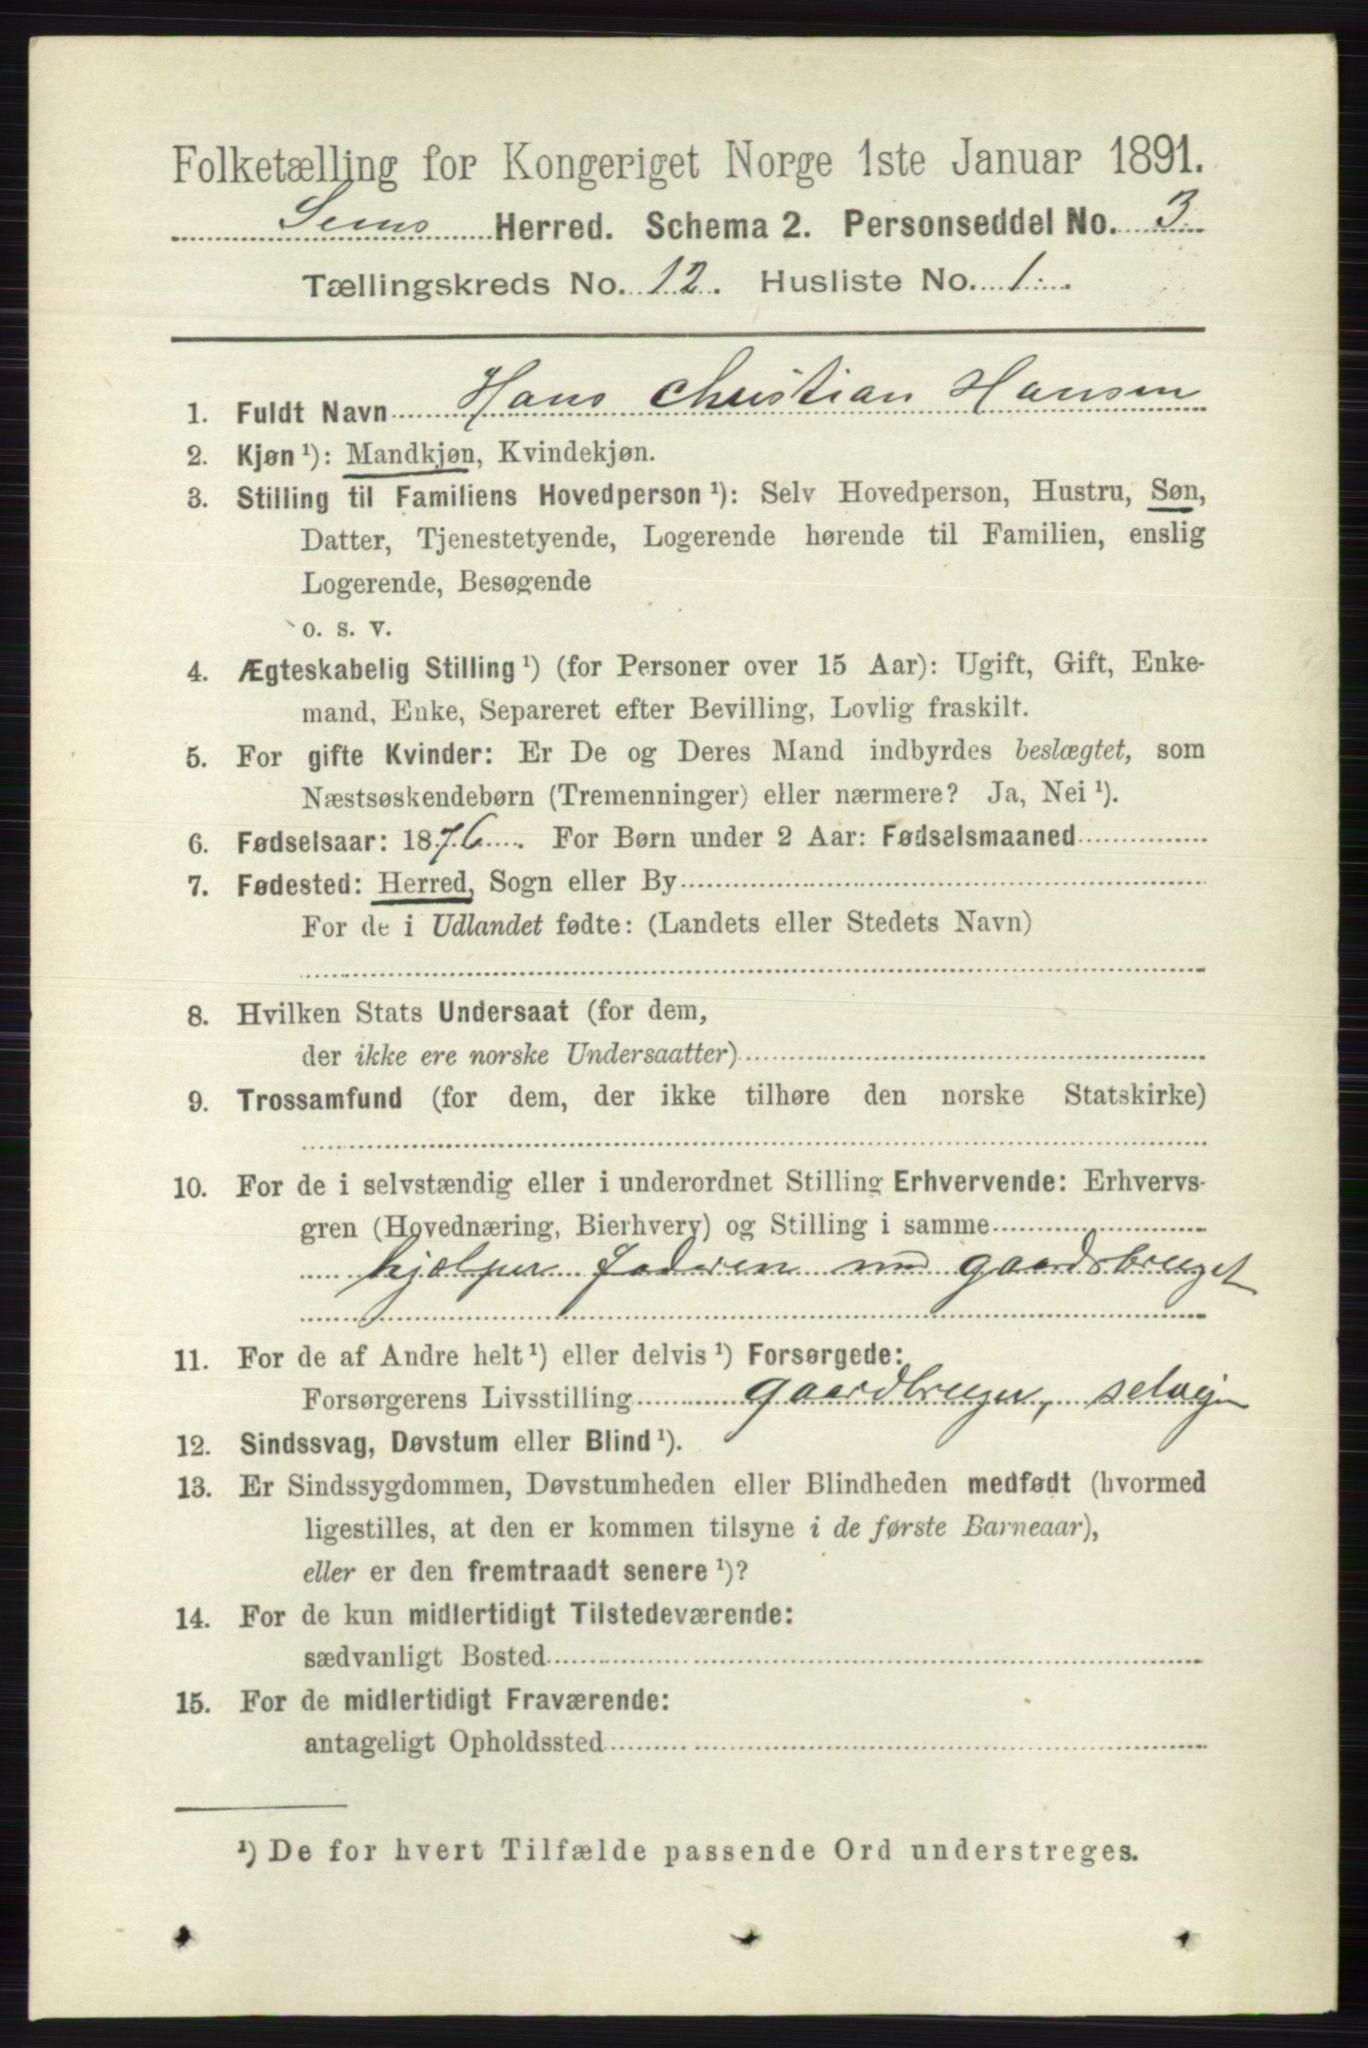 Folketælling for Kongeriget Norge 1ste Januar 1891.
Sems Herred. Schema 2. Personseddel No. 3
Tællingskreds No. 12. Husliste No. 1.
1. Fuldt Navn Hans Christian Hansen
2. Kjøn ¹): Mandkjøn, Kvindekjøn.
3. Stilling til Familiens Hovedperson ¹): Selv Hovedperson, Hustru, Søn,
Datter, Tjenestetyende, Logerende hørende til Familien, enslig
Logerende, Besøgende
o. s. v.
4. Ægteskabelig Stilling ¹) (for Personer over 15 Aar): Ugift, Gift, Enke-
mand, Enke, Separeret efter Bevilling, Lovlig fraskilt.
5. For gifte Kvinder: Er De og Deres Mand indbyrdes beslægtet, som
Næstsøskendebørn (Tremenninger) eller nærmere? Ja, Nei ¹).
6. Fødselsaar: 1876. For Børn under 2 Aar: Fødselsmaaned
7. Fødested: Herred, Sogn eller By
For de i Udlandet fødte: (Landets eller Stedets Navn)
8. Hvilken Stats Undersaat (for dem,
der ikke ere norske Undersaatter)
9. Trossamfund (for dem, der ikke tilhøre den norske Statskirke)
10. For de i selvstændig eller i underordnet Stilling Erhvervende: Erhvervs-
gren (Hovednæring, Bierhverv) og Stilling i samme
hjælper Faderen med gaardsbruget
11. For de af Andre helt ¹) eller delvis ¹) Forsørgede:
Forsørgerens Livsstilling gaardbruger, selveien
12. Sindssvag, Døvstum eller Blind ¹).
13. Er Sindssygdommen, Døvstumheden eller Blindheden medfødt (hvormed
ligestilles, at den er kommen tilsyne i de første Barneaar),
eller er den fremtraadt senere ¹)?
14. For de kun midlertidigt Tilstedeværende:
sædvanligt Bosted
15. For de midlertidigt Fraværende:
antageligt Opholdssted
¹) De for hvert Tilfælde passende Ord understreges.